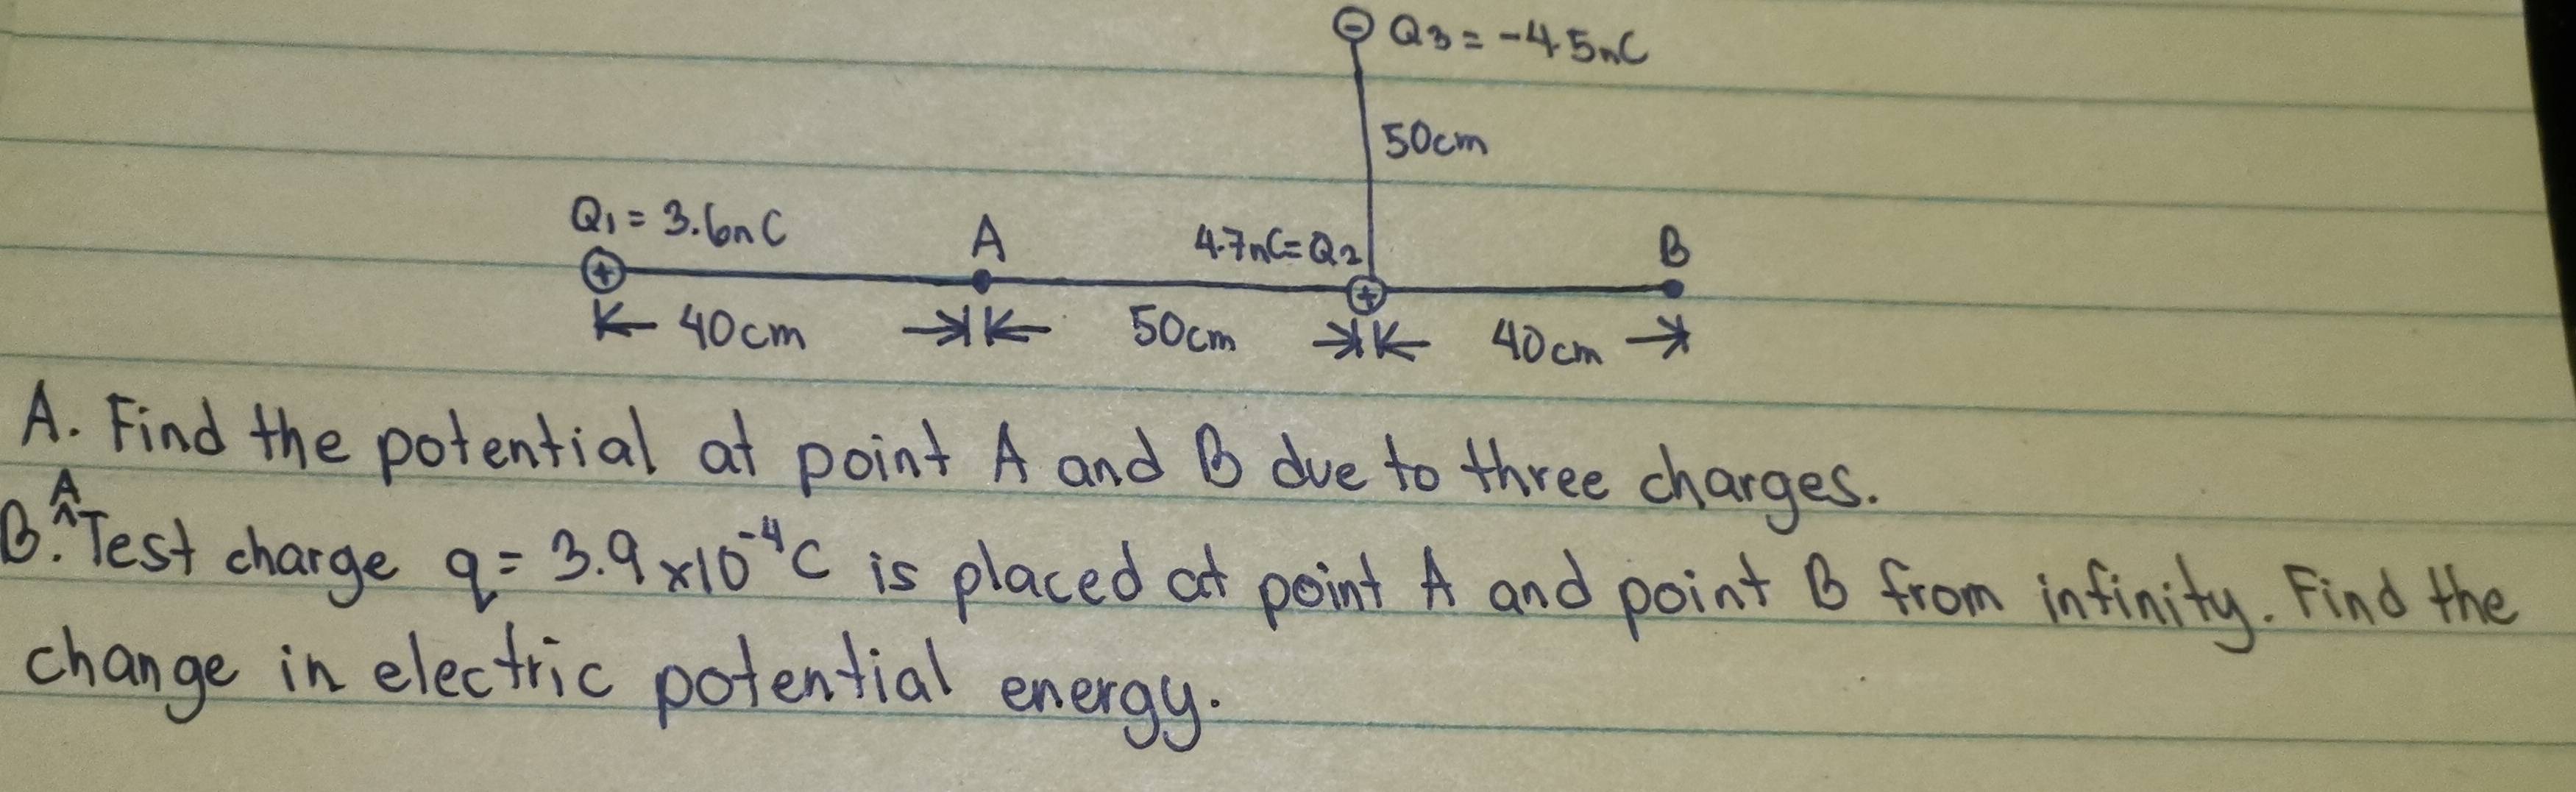 ⊖ Q3 = -4.5nC
50cm
Q1 = 3.6nC
A
4.7nC=Q2
B
40cm
50cm
40cm
A. Find the potential at point A and B due to three charges.
B. A Test charge q = 3.9 x10⁻⁴C is placed at point A and point B from infinity. Find the
change in electric potential energy.